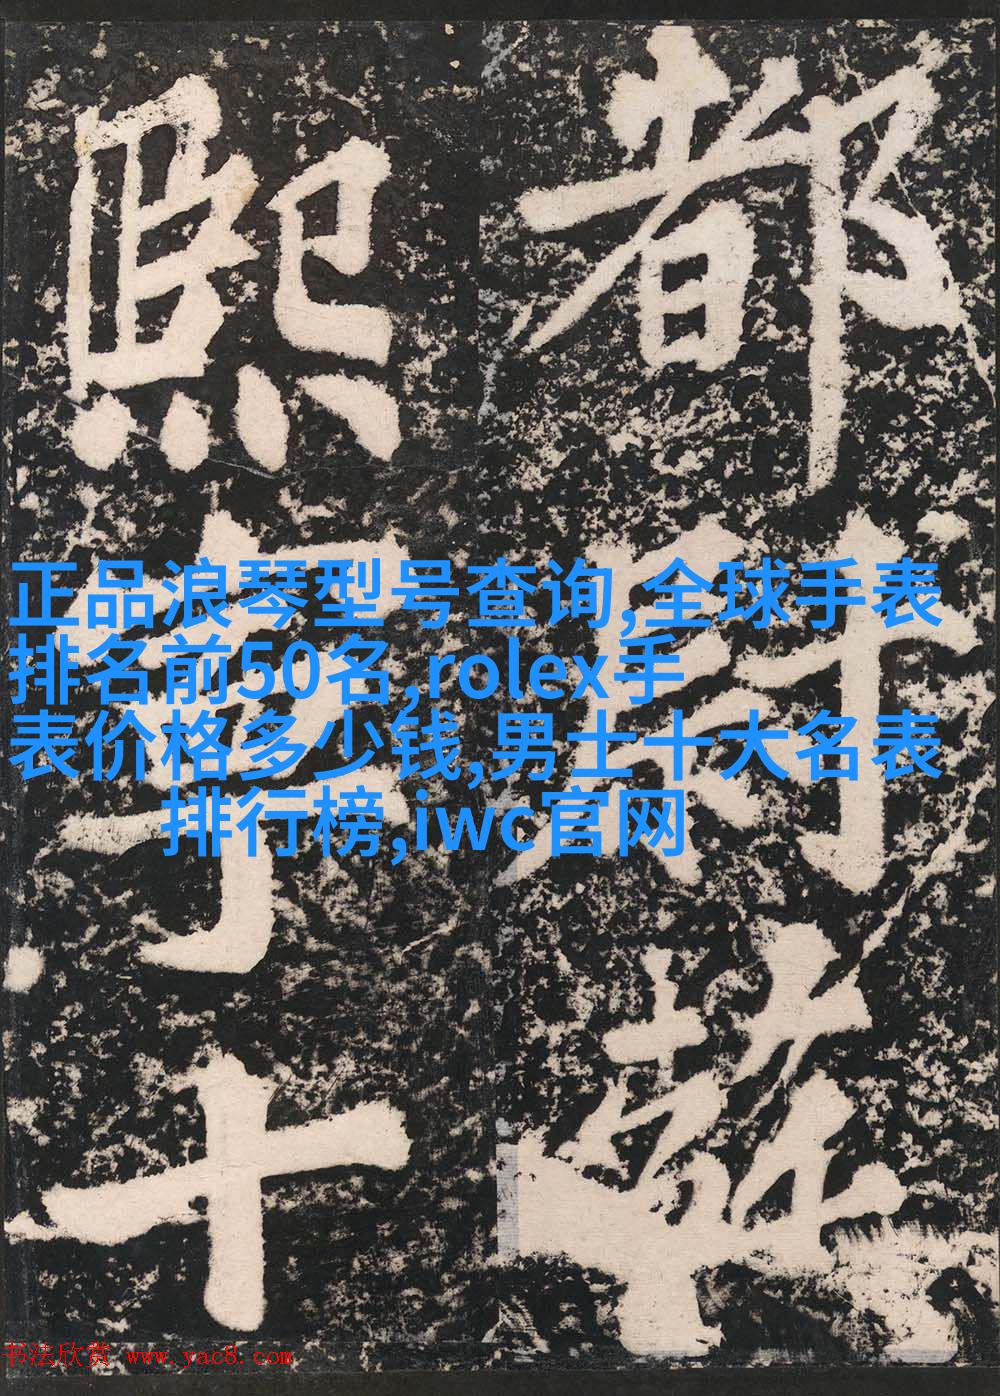 都尉蘇
熙寧十
正品浪琴型号查询,全球手表
排名前50名,rolex手
表价格多少钱,男士十大名表
排行榜,iwc官网
书法欣赏 www.yac8.com